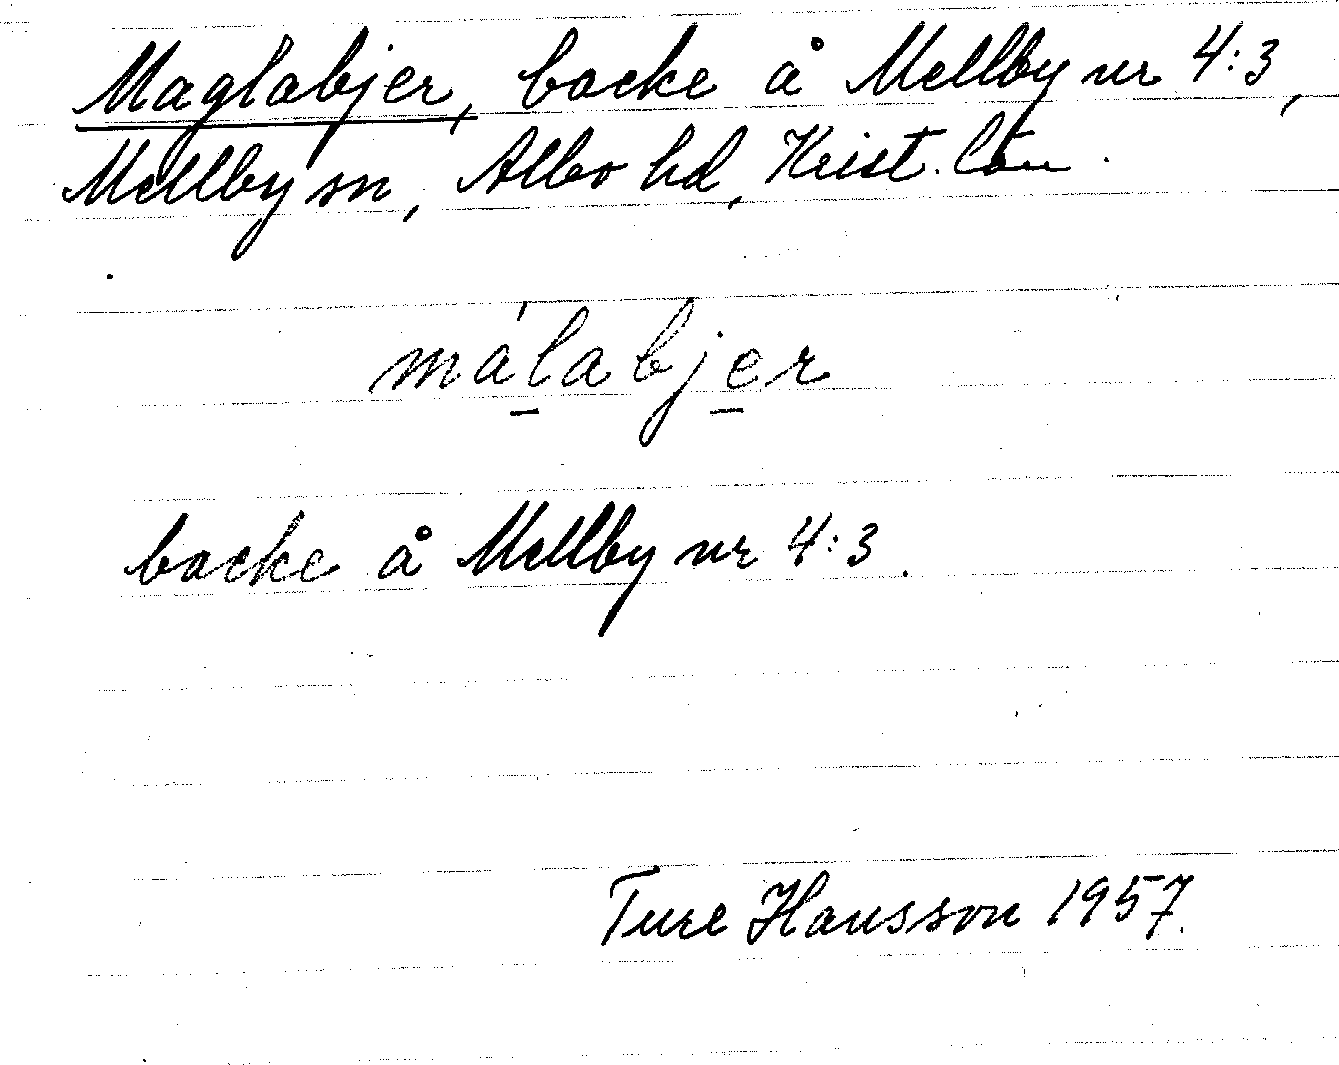 Maglabjer, backe å Mellby nr 4:3,
Mellby sn, Albo hd, Krist. län.
málabjer
backe å Mellby nr 4:3.
Ture Hansson 1957.